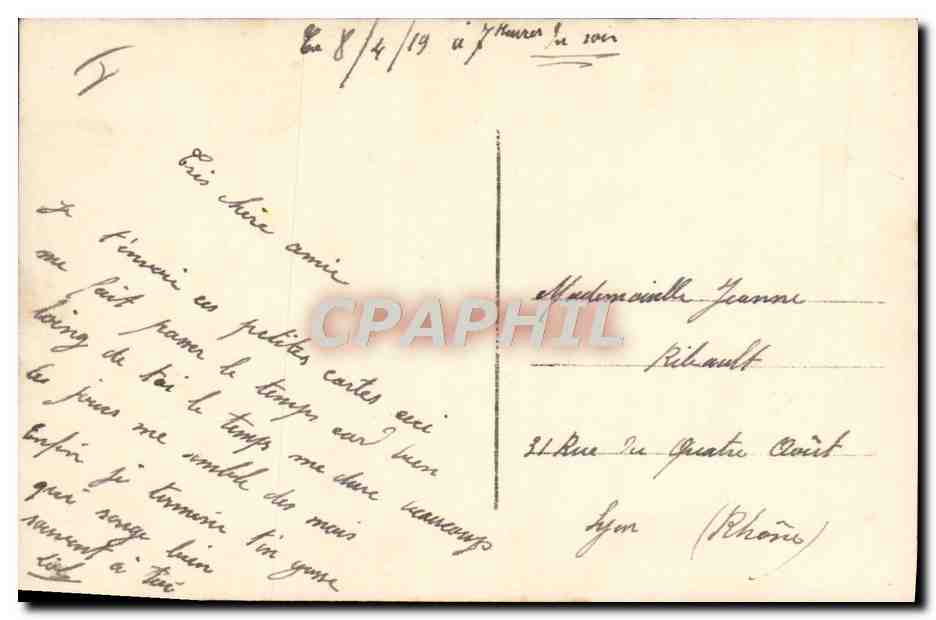 Le 8/4/19 à 7 heures du soir
Très chère amie
Je t'envoi ces petites cartes ceci
me fait passer le temps car bien
loing de toi le temps me dure beaucoup
les jours me semble des mois
Enfin je termine t'on gosse
qui songe bien
souvent à toi
Mademoiselle Jeanne
Ribault
31 Rue du Quatre Août
Lyon (Rhône)
CPAPHIL